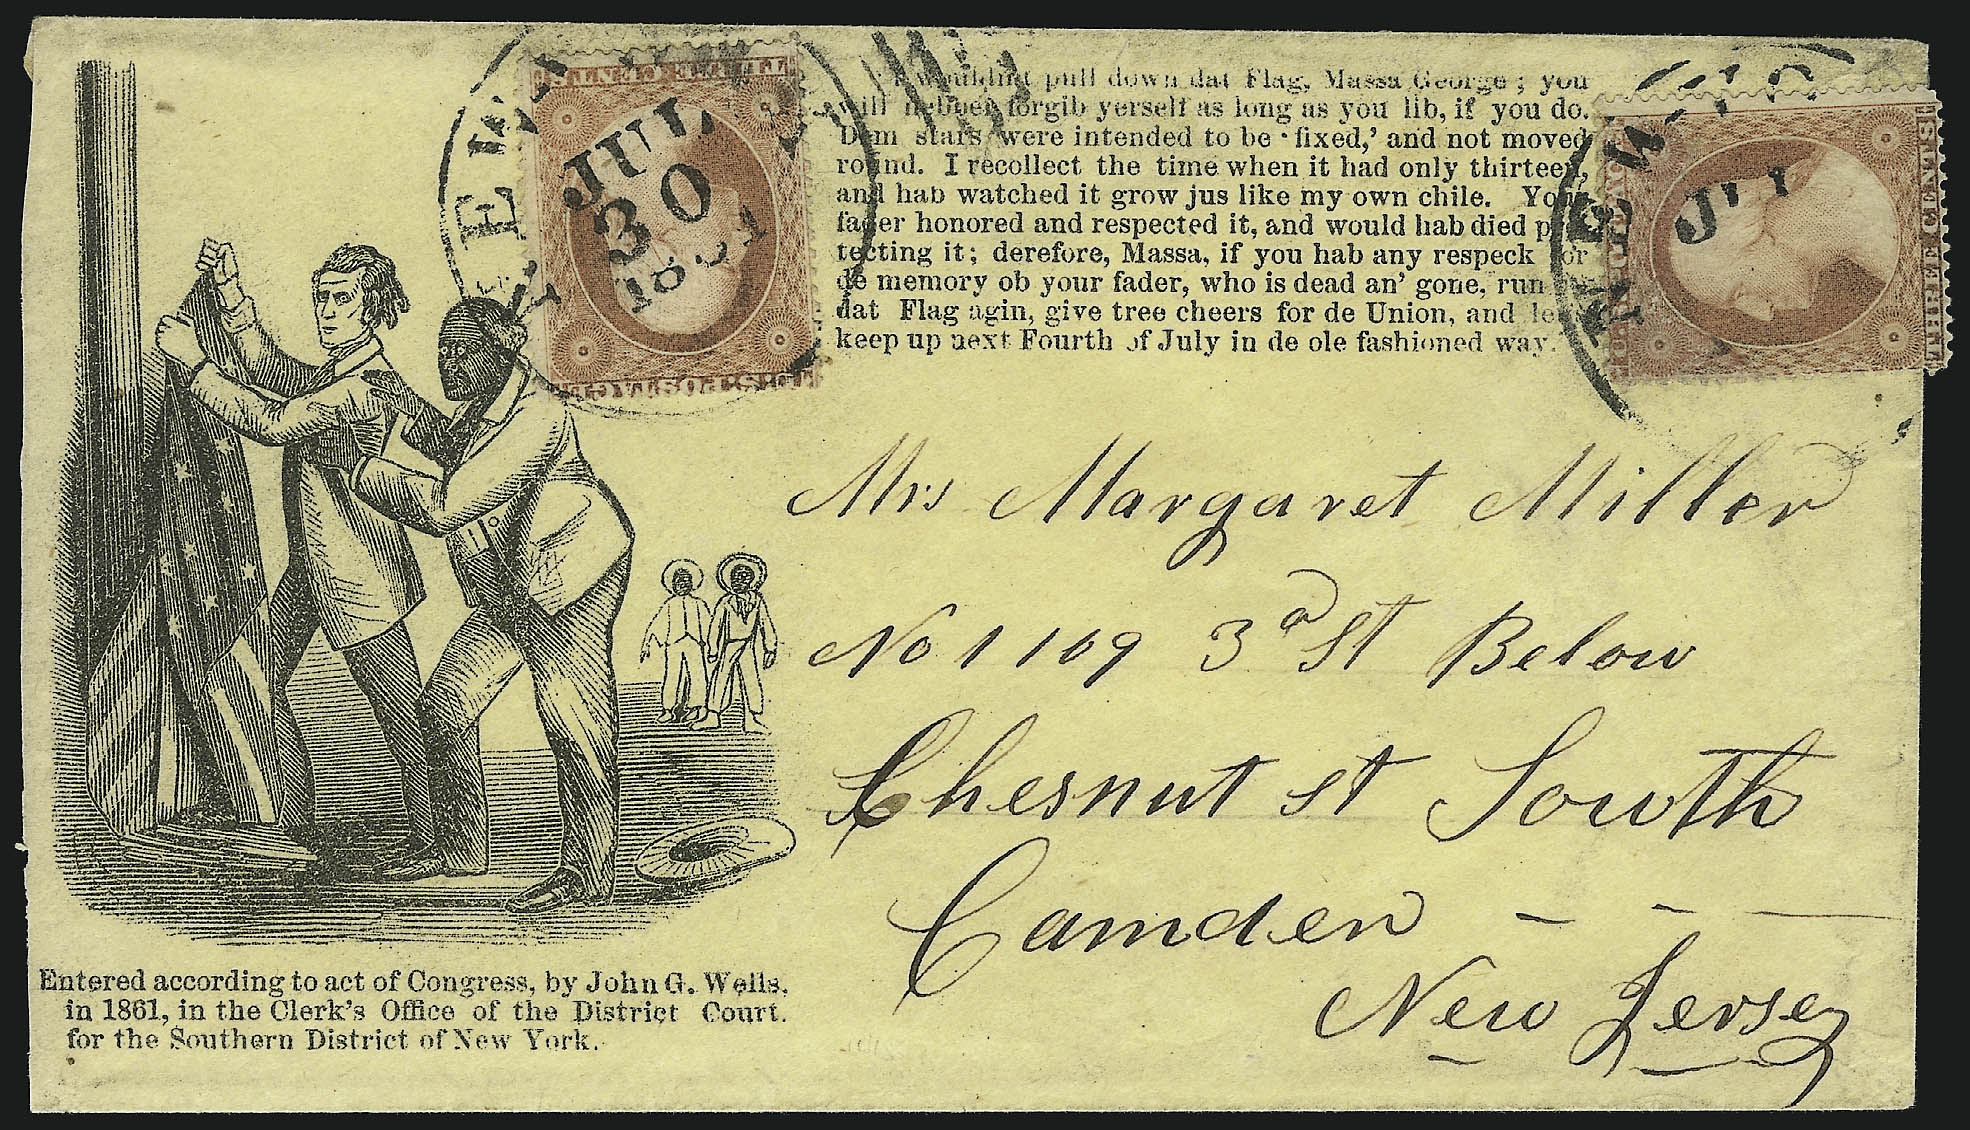 I wouldn't pull down dat Flag, Massa George; you
will nebber forgib yerself as long as you lib, if you do.
Dem stars were intended to be 'fixed,' and not moved
round. I recollect the time when it had only thirteen,
and hab watched it grow jus like my own chile. Your
fader honored and respected it, and would hab died pro
tecting it; derefore, Massa, if you hab any respeck for
de memory ob your fader, who is dead an' gone, run
dat Flag agin, give tree cheers for de Union, and
keep up next Fourth of July in de ole fashioned way.
THREE CENTS
U.S. POSTAGE
JUL
30
1861
NEW-YO
JUL
THREE CENTS
Mrs Margaret Miller
No 1109 3rd St Below
Chesnut st South
Camden
New Jersey
Entered according to act of Congress, by John G. Wells,
in 1861, in the Clerk's Office of the District Court.
for the Southern District of New York.